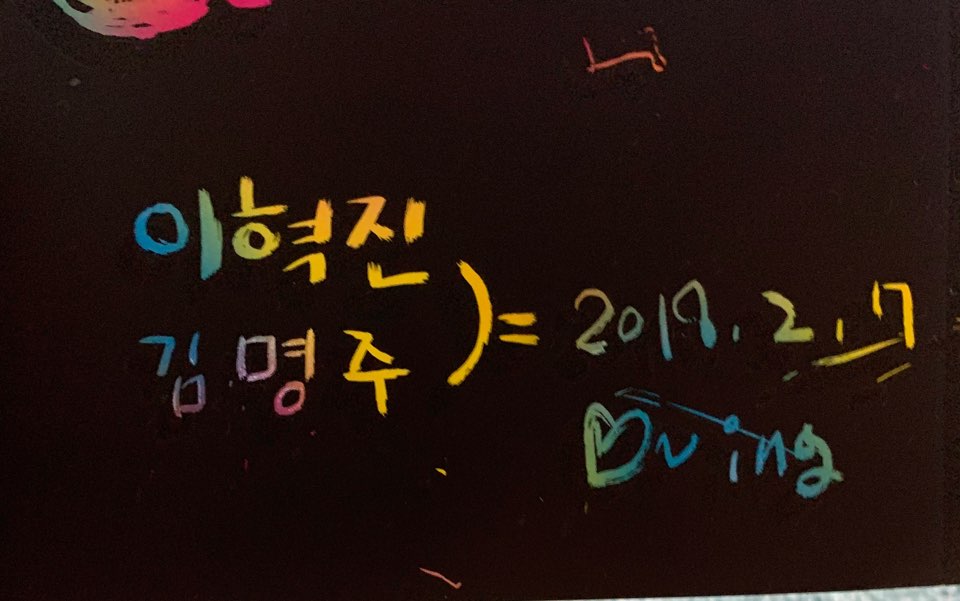 이혁진
김명주
)= 2018. 2. 17
♡v ing